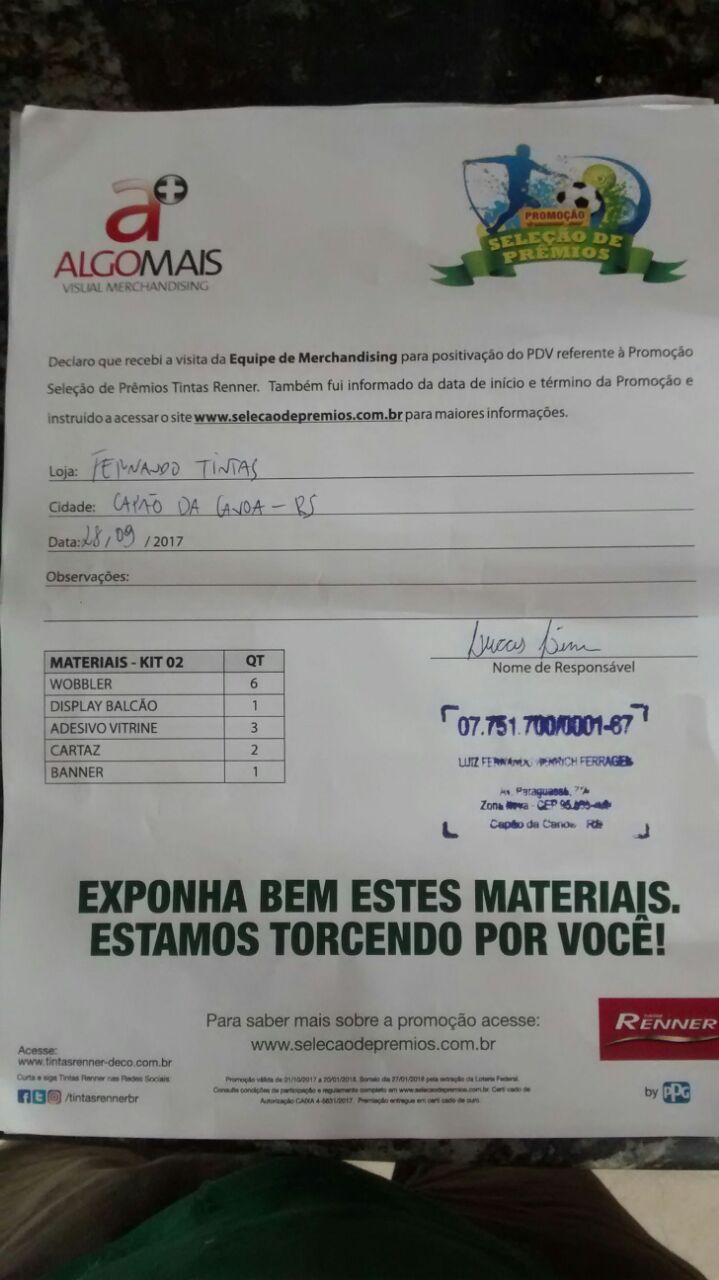 a+
ALGOMAIS
VISUAL MERCHANDISING
PROMOÇÃO
SELEÇÃO DE
PRÊMIOS
Declaro que recebi a visita da Equipe de Merchandising para positivação do PDV referente à Promoção
Seleção de Prêmios Tintas Renner. Também fui informado da data de início e término da Promoção e
instruído a acessar o site www.selecaodepremios.com.br para maiores informações.
Loja: FERNANDO TINTAS
Cidade: CAPÃO DA CANOA - RS
Data: 28/09 / 2017
Observações:
Lucas
Nome de Responsável
MATERIAIS - KIT 02 QT
WOBBLER 6
DISPLAY BALCÃO 1
ADESIVO VITRINE 3
CARTAZ 2
BANNER 1
07.751.700/0001-67
LUIZ FERRAGEM
Av. Paraguassú,
Zona Nova - CEP
Capão da Canoa RS
EXPONHA BEM ESTES MATERIAIS.
ESTAMOS TORCENDO POR VOCÊ!
Para saber mais sobre a promoção acesse:
www.selecaodepremios.com.br
RENNER
Acesse:
www.tintasrenner-deco.com.br
Curta e siga Tintas Renner nas Redes Sociais:
/tintasrennerbr
Promoção válida de 01/10/2017 a 20/01/2018. Sorteio dia 27/01/2018 pela extração da Loteria Federal.
Consulte condições de participação e regulamento completo em www.selecaodepremios.com.br. Certificado de
Autorização CAIXA 4-5631/2017. Premiação entregue em certificado de ouro.
by PPG